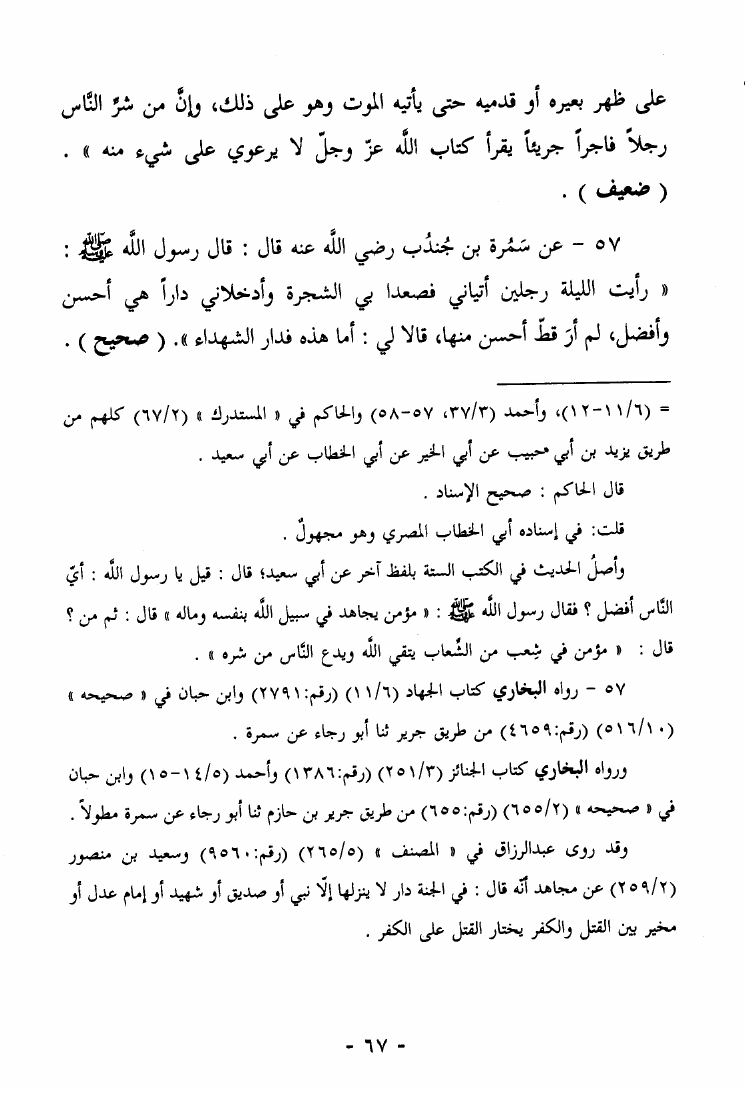 على ظهر بعيره أو قدميه حتى يأتيه الموت وهو على ذلك، وإنَّ من شرِّ النَّاس
رجلاً فاجراً جريئاً يقرأ كتاب اللَّه عزّ وجلّ لا يرعوي على شيء منه » .
( ضعيف ) .
٥٧ - عن سَمُرة بن جُندُب رضي اللَّه عنه قال : قال رسول اللَّه ﷺ :
« رأيت الليلة رجلين أتياني فصعدا بي الشجرة وأدخلاني داراً هي أحسن
وأفضل، لم أرَ قطّ أحسن منها، قالا لي : أما هذه فدار الشهداء ». ( صحيح ) .
= (١١/٦-١٢)، وأحمد (٣٧/٣، ٥٧-٥٨) والحاكم في « المستدرك » (٦٧/٢) كلهم من
طريق يزيد بن أبي حبيب عن أبي الخير عن أبي الخطاب عن أبي سعيد .
قال الحاكم : صحيح الإسناد .
قلت: في إسناده أبي الخطاب المصري وهو مجهولٌ .
وأصلُ الحديث في الكتب الستة بلفظ آخر عن أبي سعيد؛ قال : قيل يا رسول اللَّه : أيّ
النَّاس أفضل ؟ فقال رسول اللَّه ﷺ : « مؤمن يجاهد في سبيل اللَّه بنفسه وماله » قال : ثم من ؟
قال : « مؤمن في شِعب من الشِّعاب يتقي اللَّه ويدع النَّاس من شره » .
٥٧ - رواه البخاري كتاب الجهاد (١١/٦) (رقم:٢٧٩١) وابن حبان في « صحيحه »
(٥١٦/١٠) (رقم:٤٦٥٩) من طريق جرير ثنا أبو رجاء عن سمرة .
ورواه البخاري كتاب الجنائز (٢٥١/٣) (رقم:١٣٨٦) وأحمد (١٤/٥-١٥) وابن حبان
في « صحيحه » (٦٥٥/٢) (رقم:٦٥٥) من طريق جرير بن حازم ثنا أبو رجاء عن سمرة مطولاً .
وقد روى عبدالرزاق في « المصنف » (٢٦٥/٥) (رقم:٩٥٦٠) وسعيد بن منصور
(٢٥٩/٢) عن مجاهد أنّه قال : في الجنة دار لا ينزلها إلّا نبي أو صديق أو شهيد أو إمام عدل أو
مخير بين القتل والكفر يختار القتل على الكفر .
- ٦٧ -